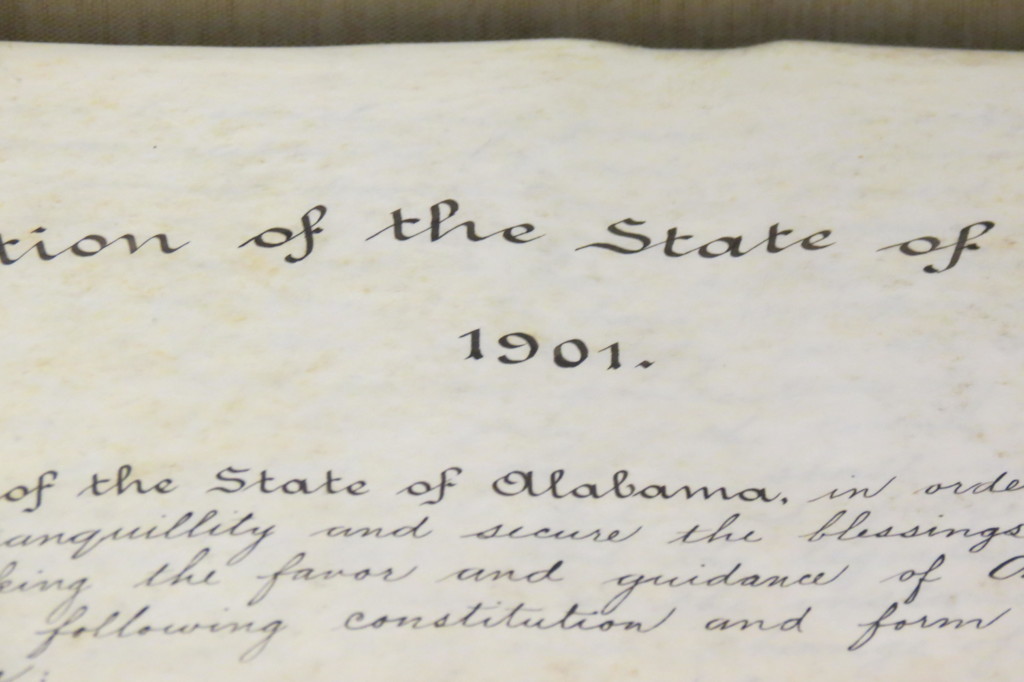 tion of the State of
1901.
of the State of Alabama, in orde
anquillity and secure the blessings
king the favor and guidance of
following constitution and form